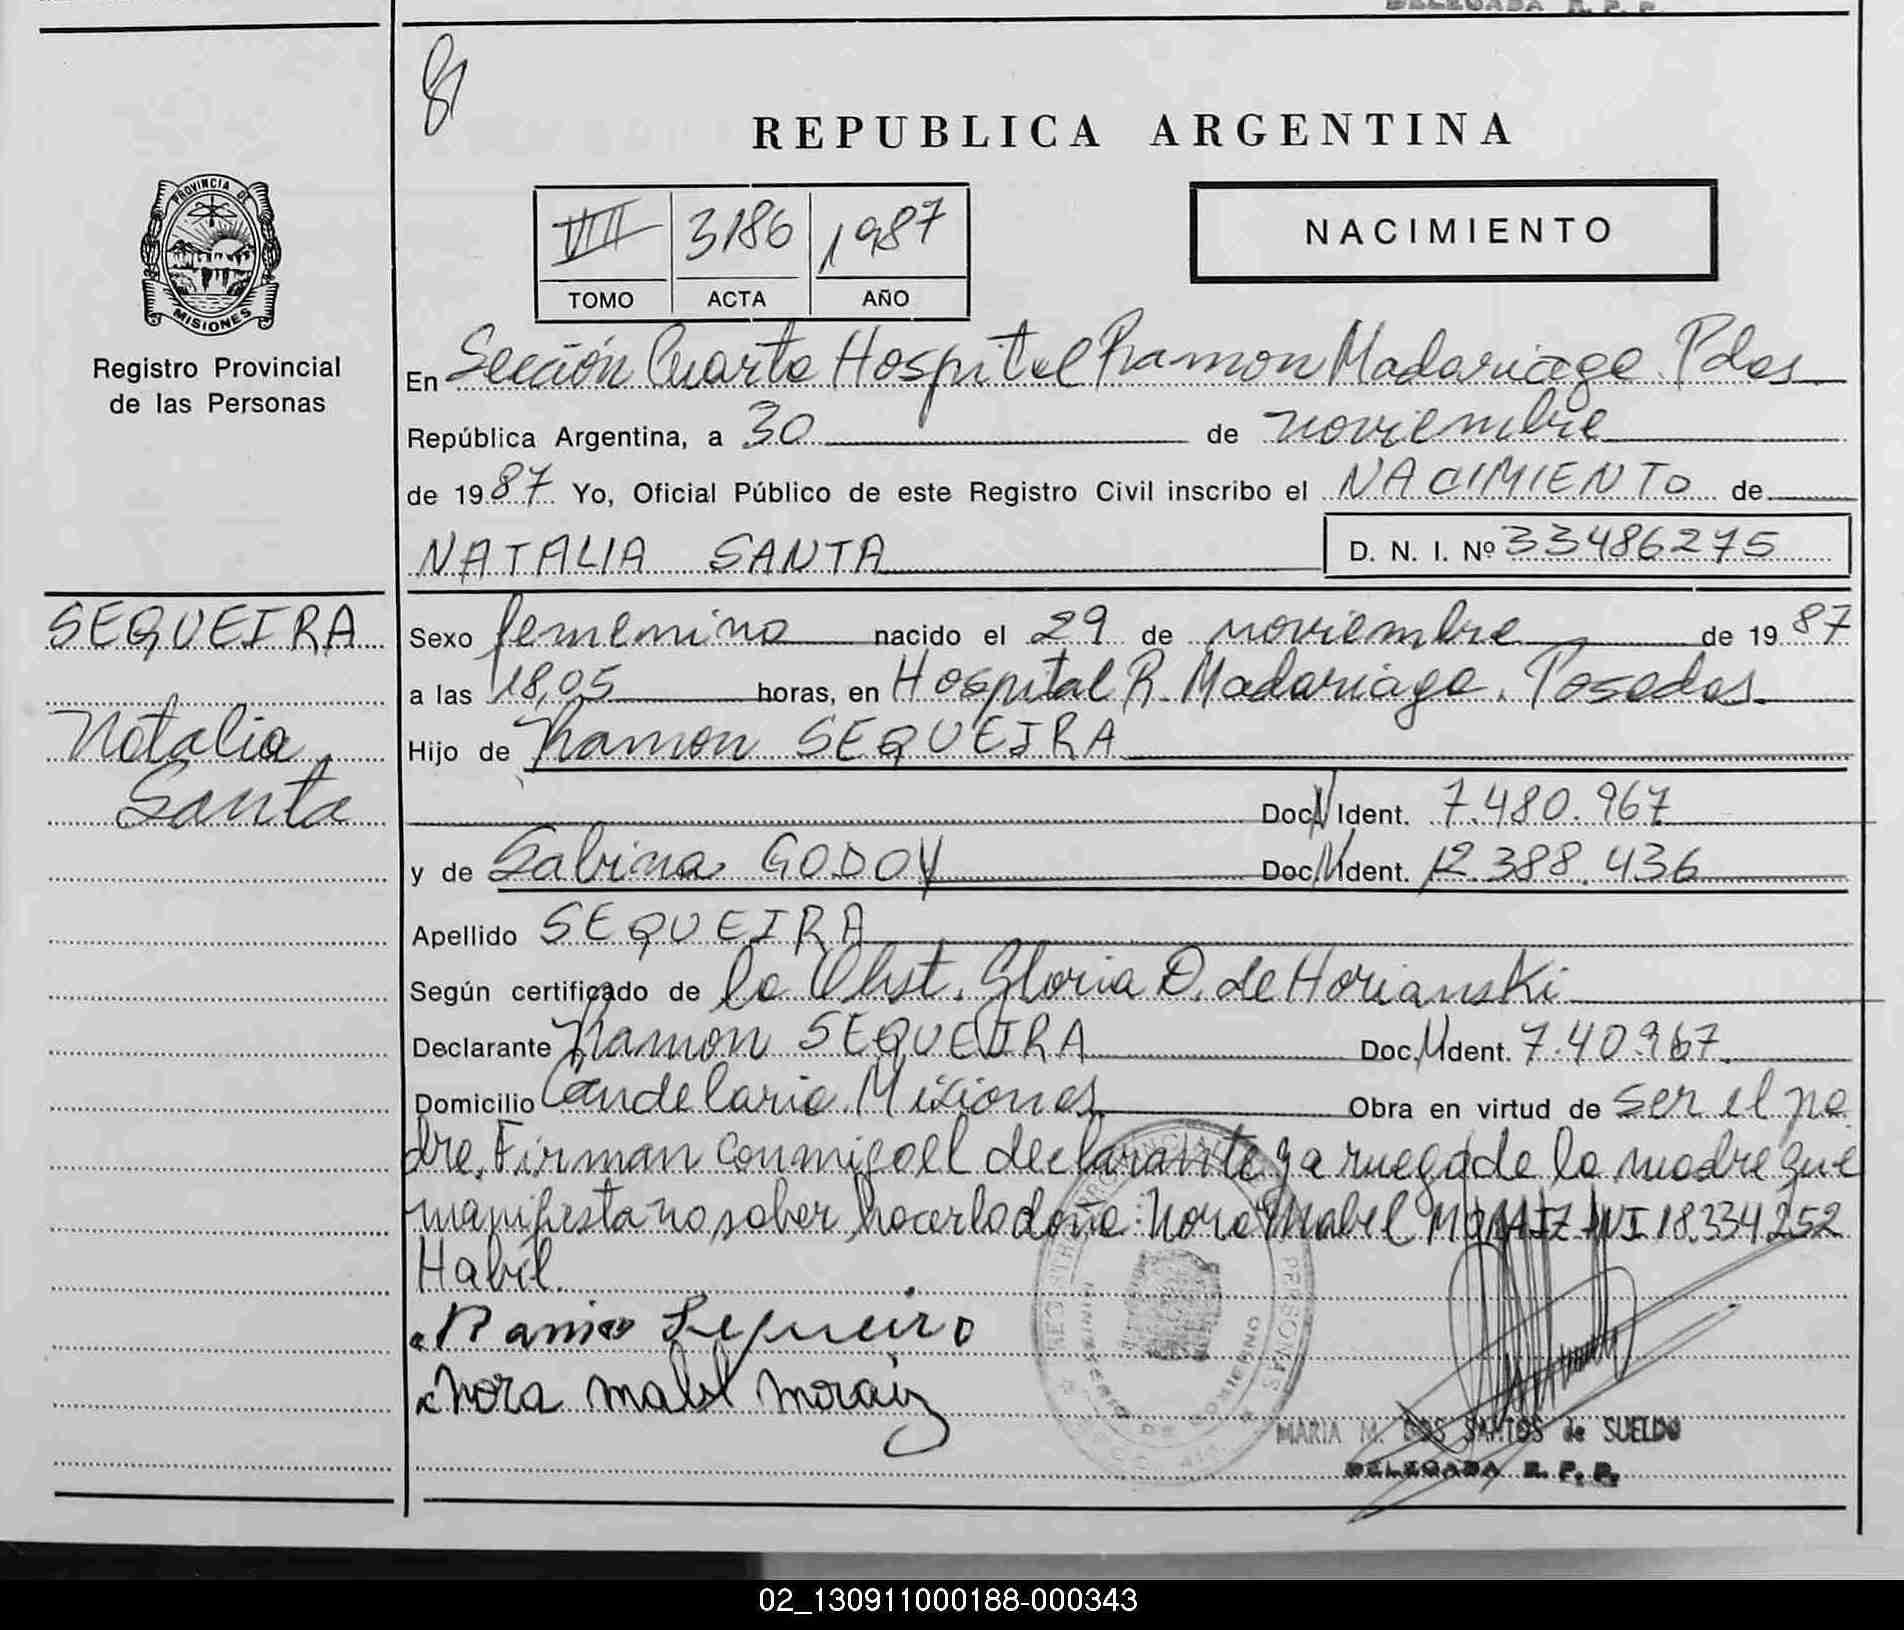 DELEGADA R. P. P.
81
REPUBLICA ARGENTINA
VIII 3186 1987
TOMO ACTA AÑO
NACIMIENTO
PROVINCIA DE
MISIONES
Registro Provincial
de las Personas
En Sección Cuarta Hospital Ramon Madariaga. Pdas.
República Argentina, a 30 de noviembre
de 1987 Yo, Oficial Público de este Registro Civil inscribo el NACIMIENTO de
NATALIA SANTA D. N. I. Nº 33486275
SEQUEIRA
Natalia
Santa
Sexo femenino nacido el 29 de noviembre de 1987
a las 18,05 horas, en Hospital R. Madariaga. Posadas.
Hijo de Ramon SEQUEIRA
Doc. Ident. 7.480.967
y de Sabina GODOY Doc. Ident. 12.388.436
Apellido SEQUEIRA
Según certificado de la Obst. Gloria D. de Horianski
Declarante Ramon SEQUEIRA Doc. Ident. 7.40.967.
Domicilio Candelaria Misiones Obra en virtud de ser el pa
dre. Firman conmigo el declarante y a ruego de la madre que
manifiesta no saber hacerlo doña: Nora Mabel MORAIZ DNI 18.334.252
Habil.
Ramon Sequeira
Nora Mabel Moraiz
MARIA M. DOS SANTOS de SUELDO
DELEGADA R. P. P.
02_130911000188-000343